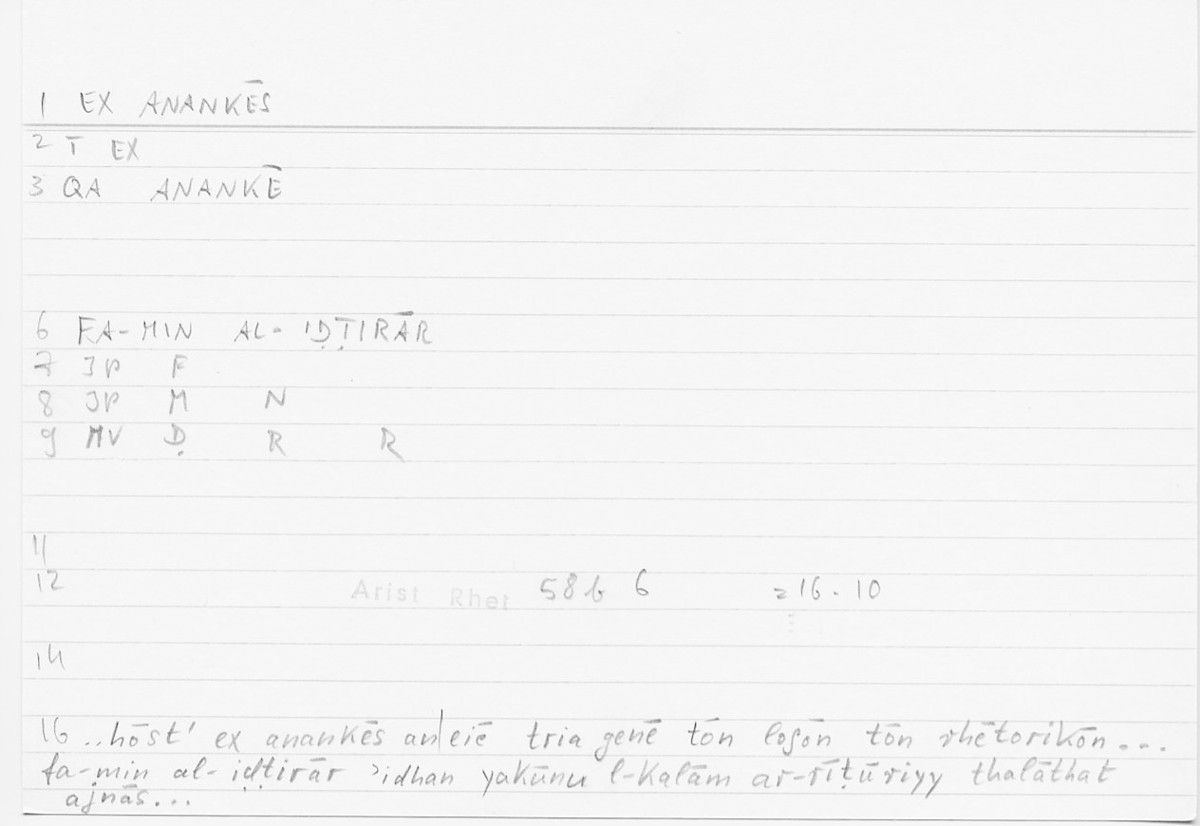 1 EX ANANKĒS
2 T EX
3 QA ANANKĒ
6 FA-MIN AL-IḌṬIRĀR
7 JP F
8 JP M N
9 MV Ḍ R R
11
12 Arist Rhet 58b 6 =16.10
14
16 ..hōst' ex anankēs an|eiē tria genē tōn logōn tōn rhētorikōn...
fa-min al-iḍṭirār ʾidhan yakūnu l-kalām ar-rīṭūriyy thalāthat
ajnās...